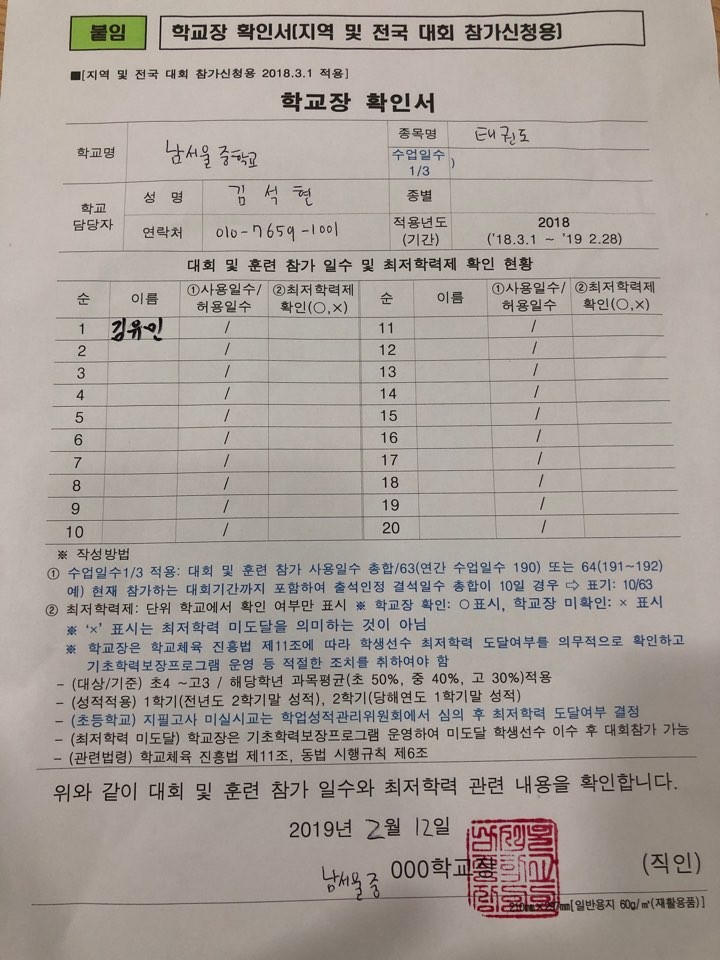 붙임
학교장 확인서(지역 및 전국 대회 참가신청용)
■[지역 및 전국 대회 참가신청용 2018.3.1 적용]
학교장 확인서
학교명 남서울중학교 종목명 태권도
수업일수 1/3 )
학교 담당자 성 명 김석현 종별
연락처 010-7659-1001 적용년도 (기간) 2018 ('18.3.1 ~ '19 2.28)
대회 및 훈련 참가 일수 및 최저학력제 확인 현황
순 이름 ①사용일수/허용일수 ②최저학력제 확인(○,×) 순 이름 ①사용일수/허용일수 ②최저학력제 확인(○,×)
1 김유민 / 11 /
2 / 12 /
3 / 13 /
4 / 14 /
5 / 15 /
6 / 16 /
7 / 17 /
8 / 18 /
9 / 19 /
10 / 20 /
※ 작성방법
① 수업일수1/3 적용: 대회 및 훈련 참가 사용일수 총합/63(연간 수업일수 190) 또는 64(191~192)
예) 현재 참가하는 대회기간까지 포함하여 출석인정 결석일수 총합이 10일 경우 ⇨ 표기: 10/63
② 최저학력제: 단위 학교에서 확인 여부만 표시 ※ 학교장 확인: ○표시, 학교장 미확인: × 표시
※ '×' 표시는 최저학력 미도달을 의미하는 것이 아님
※ 학교장은 학교체육 진흥법 제11조에 따라 학생선수 최저학력 도달여부를 의무적으로 확인하고
기초학력보장프로그램 운영 등 적절한 조치를 취하여야 함
- (대상/기준) 초4 ~고3 / 해당학년 과목평균(초 50%, 중 40%, 고 30%)적용
- (성적적용) 1학기(전년도 2학기말 성적), 2학기(당해연도 1학기말 성적)
- (초등학교) 지필고사 미실시교는 학업성적관리위원회에서 심의 후 최저학력 도달여부 결정
- (최저학력 미도달) 학교장은 기초학력보장프로그램 운영하여 미도달 학생선수 이수 후 대회참가 가능
- (관련법령) 학교체육 진흥법 제11조, 동법 시행규칙 제6조
위와 같이 대회 및 훈련 참가 일수와 최저학력 관련 내용을 확인합니다.
2019년 2월 12일
남서울중 000학교장 (직인)
210㎜×297㎜[일반용지 60g/㎡(재활용품)]